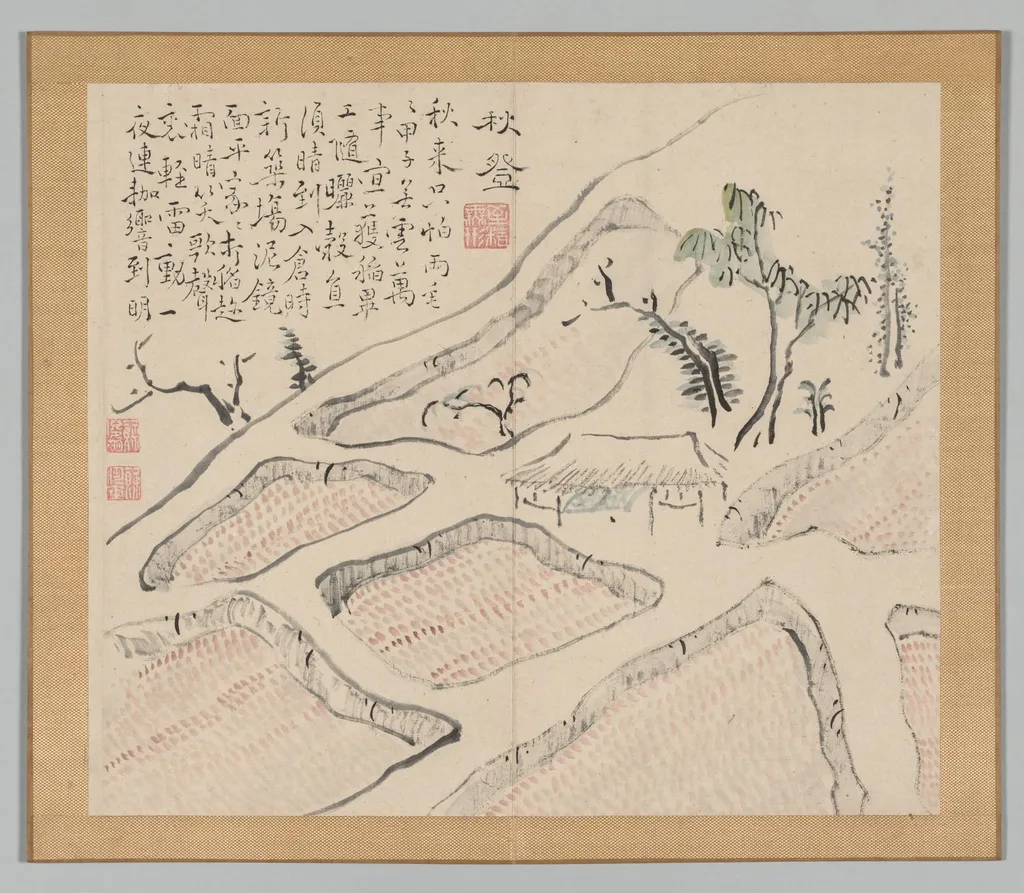 秋登
秋来只怕雨垂
〻甲子無雲萬
事宜獲稻畢
工隨曬穀直
須晴到入倉時
新築場泥鏡
面平家〻打稻趁
霜晴笑歌聲
裏輕雷動一
夜連耞響到明